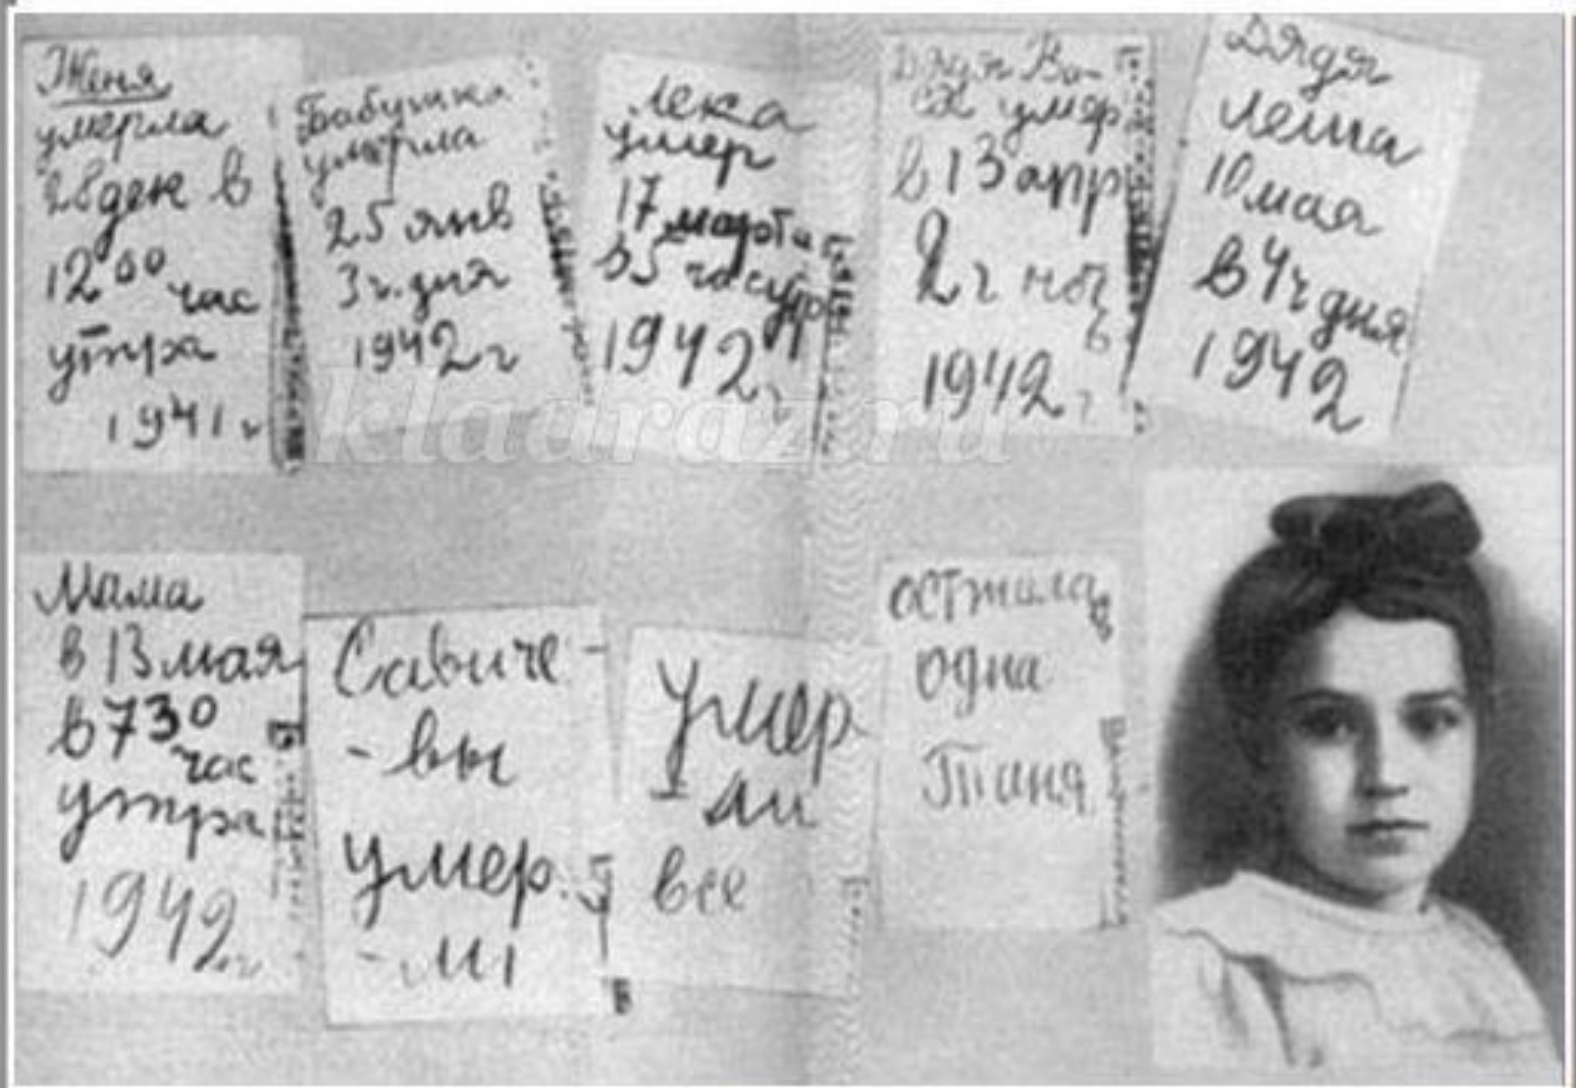 Женя
умерла
28 дек в
12 00 час
утра
1941 г
Бабушка
умерла
25 янв
3 ч. дня
1942 г
Лека
умер
17 марта
в 5 час утр
1942 г
Дядя Ва-
ся умер
в 13 апр
2 ч ноч
1942 г
Дядя
Леша
10 мая
в 4 ч дня
1942
Мама
в 13 мая
в 730
час
утра
1942 г
Савиче-
-вы
умер
-ли
Умер
-ли
все
осталась
одна
Таня
klaaraz.ru